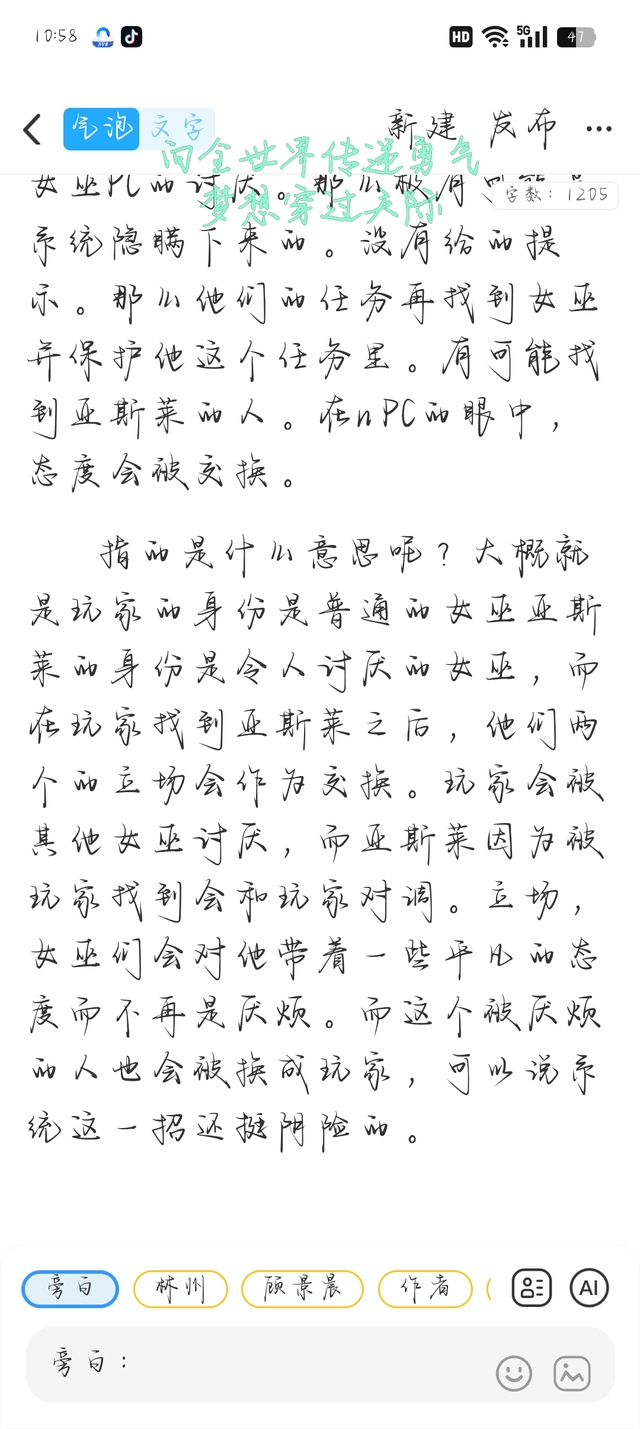 10:58
HD 5G 47
气泡 文字 新建 发布 ...
向全世界传递勇气
梦想穿过天际
字数：1205
女巫PC的讨厌。那么极有可能是
系统隐瞒下来的。没有给的提
示。那么他们的任务再找到女巫
并保护他这个任务里。有可能找
到亚斯莱的人。在nPC的眼中，
态度会被交换。
指的是什么意思呢？大概就
是玩家的身份是普通的女巫亚斯
莱的身份是令人讨厌的女巫，而
在玩家找到亚斯莱之后，他们两
个的立场会作为交换。玩家会被
其他女巫讨厌，而亚斯莱因为被
玩家找到会和玩家对调。立场，
女巫们会对他带着一些平凡的态
度而不再是厌烦。而这个被厌烦
的人也会被换成玩家，可以说系
统这一招还挺阴险的。
旁白 林州 顾景晨 作者 AI
旁白：